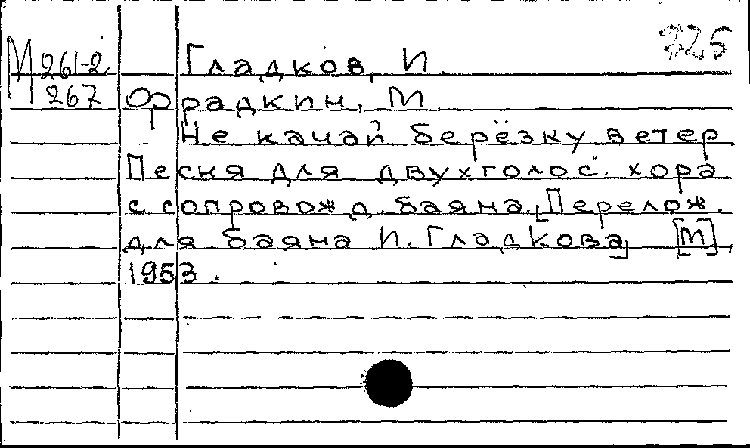 325
М 261-2 Гладков, И.
267 Фрадкин, М
Не качай берёзку ветер
Песня для двухголос. хора
с сопровожд. баяна. [Перелож.
для баяна И. Гладкова] [М],
1953.